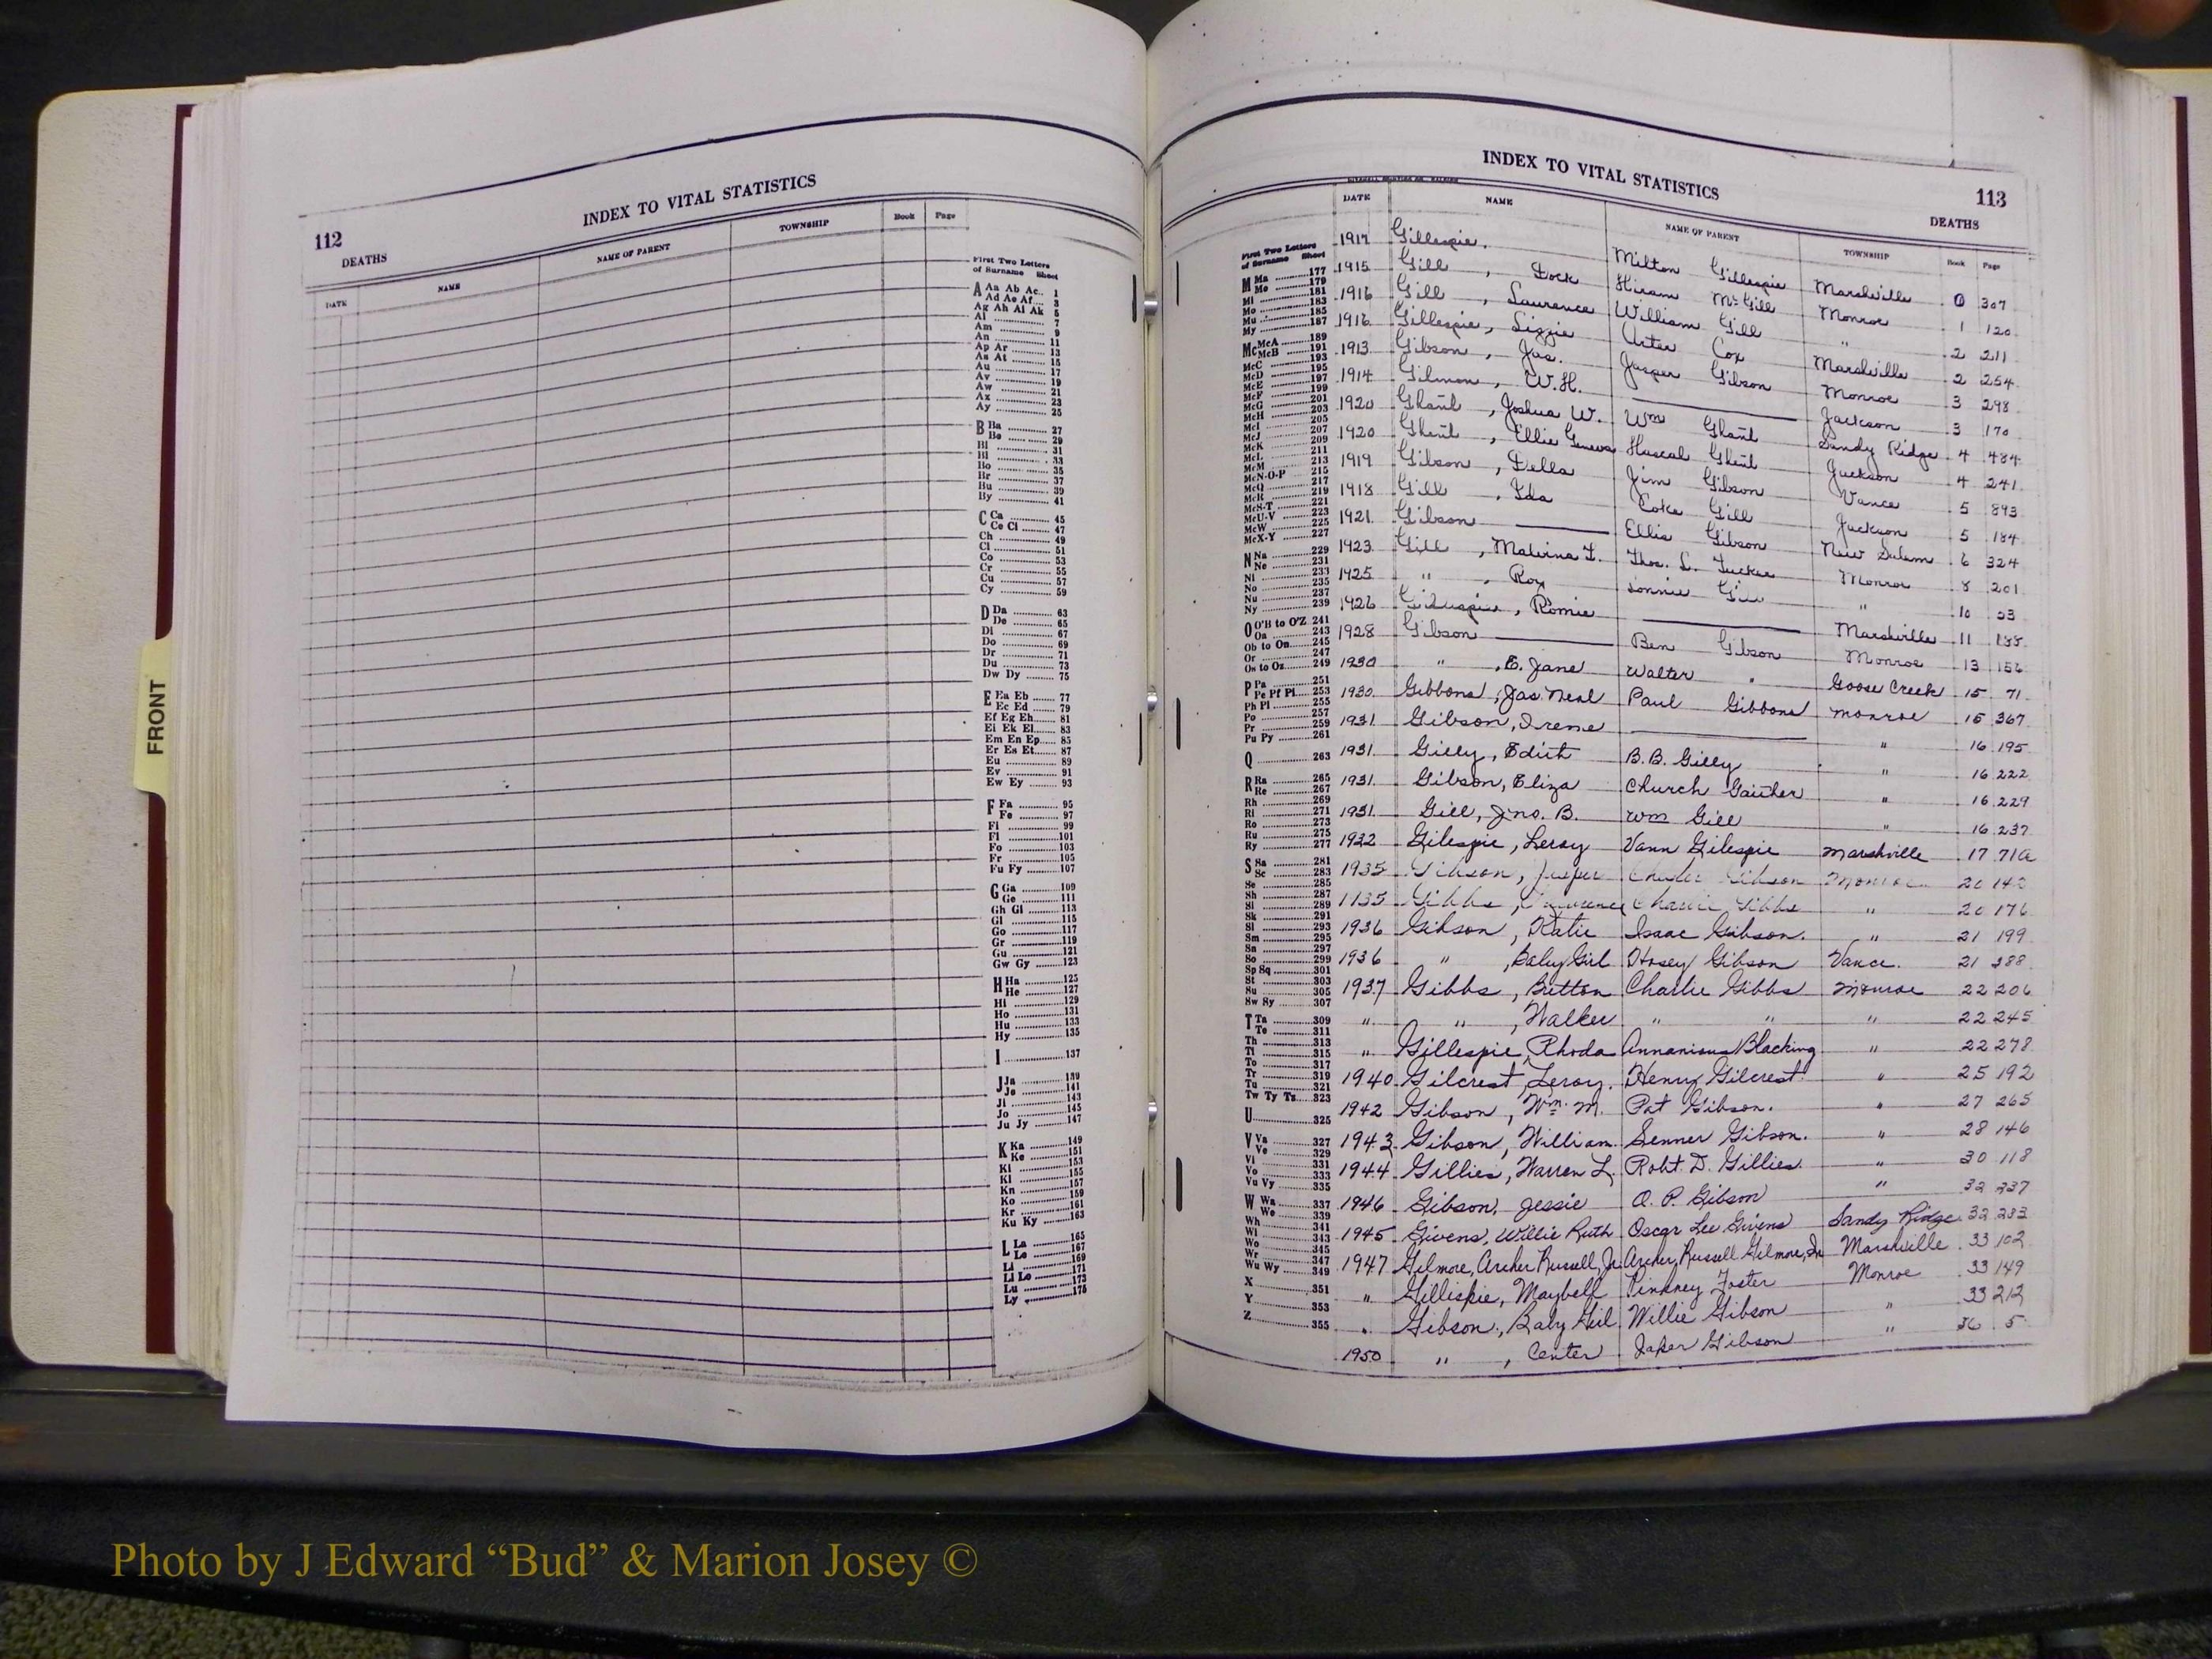 112
INDEX TO VITAL STATISTICS
DEATHS
DATE NAME NAME OF PARENT TOWNSHIP Book Page
First Two Letters
of Surname Sheet
A Aa Ab Ac.. 1
Ad Ae Af... 3
Ag Ah Ai Ak 5
Al ........ 7
Am ........ 9
An ........ 11
Ap Ar ........ 13
As At ........ 15
Au ........ 17
Av ........ 19
Aw ........ 21
Ax ........ 23
Ay ........ 25
B Ba ........ 27
Be ........ 29
Bi ........ 31
Bl ........ 33
Bo ........ 35
Br ........ 37
Bu ........ 39
By ........ 41
C Ca ........ 45
Ce Ci ........ 47
Ch ........ 49
Cl ........ 51
Co ........ 53
Cr ........ 55
Cu ........ 57
Cy ........ 59
D Da ........ 63
De ........ 65
Di ........ 67
Do ........ 69
Dr ........ 71
Du ........ 73
Dw Dy ........ 75
E Ea Eb ........ 77
Ec Ed ........ 79
Ef Eg Eh........ 81
Ei Ek El........ 83
Em En Ep........ 85
Er Es Et........ 87
Eu ........ 89
Ev ........ 91
Ew Ey ........ 93
F Fa ........ 95
Fe ........ 97
Fi ........ 99
Fl ........ 101
Fo ........ 103
Fr ........ 105
Fu Fy ........ 107
G Ga ........ 109
Ge ........ 111
Gh Gi ........ 113
Gl ........ 115
Go ........ 117
Gr ........ 119
Gu ........ 121
Gw Gy ........ 123
H Ha ........ 125
He ........ 127
Hi ........ 129
Ho ........ 131
Hu ........ 133
Hy ........ 135
I ........ 137
J Ja ........ 139
Je ........ 141
Ji ........ 143
Jo ........ 145
Ju Jy ........ 147
K Ka ........ 149
Ke ........ 151
Ki ........ 153
Kl ........ 155
Kn ........ 157
Ko ........ 159
Kr ........ 161
Ku Ky ........ 163
L La ........ 165
Le ........ 167
Li ........ 169
Ll Lo ........ 171
Lu ........ 173
Ly ........ 175
INDEX TO VITAL STATISTICS
113
DEATHS
DATE NAME NAME OF PARENT TOWNSHIP Book Page
First Two Letters
of Surname Sheet
M Ma ........ 177
Me ........ 179
Mi ........ 181
Mo ........ 183
Mu ........ 185
My ........ 187
Mc McA ........ 189
McB ........ 191
McC ........ 193
McD ........ 195
McE ........ 197
McF ........ 199
McG ........ 201
McH ........ 203
McI ........ 205
McJ ........ 207
McK ........ 209
McL ........ 211
McM ........ 213
McN-O-P ........ 215
McQ ........ 217
McR ........ 219
McS-T ........ 221
McU-V ........ 223
McW ........ 225
McX-Y ........ 227
N Na ........ 229
Ne ........ 231
Ni ........ 233
No ........ 235
Nu ........ 237
Ny ........ 239
O O'B to O'Z 241
Oa ........ 243
Ob to On........ 245
Or ........ 247
Os to Oz........ 249
P Pa ........ 251
Pe Pf Pl.... 253
Ph Pi ........ 255
Po ........ 257
Pr ........ 259
Pu Py ........ 261
Q ........ 263
R Ra ........ 265
Re ........ 267
Rh ........ 269
Ri ........ 271
Ro ........ 273
Ru ........ 275
Ry ........ 277
S Sa ........ 281
Sc ........ 283
Se ........ 285
Sh ........ 287
Si ........ 289
Sk ........ 291
Sl ........ 293
Sm ........ 295
Sn ........ 297
So ........ 299
Sp Sq ........ 301
St ........ 303
Su ........ 305
Sw Sy ........ 307
T Ta ........ 309
Te ........ 311
Th ........ 313
Ti ........ 315
To ........ 317
Tr ........ 319
Tu ........ 321
Tw Ty Tz........ 323
U ........ 325
V Va ........ 327
Ve ........ 329
Vi ........ 331
Vo ........ 333
Vu Vy ........ 335
W Wa ........ 337
We ........ 339
Wh ........ 341
Wi ........ 343
Wo ........ 345
Wr ........ 347
Wu Wy ........ 349
X ........ 351
Y ........ 353
Z ........ 355
1917 Gillespie. Milton Gillespie Marshville 0 307
1915 Gill , Dock Hiram McGill Monroe 1 120
1916 Gill , Laurence William Gill " 2 211
1916 Gillespie, Lizzie Arter Cox Marshville 2 254
1913 Gibson , Jas. Jasper Gibson Monroe 3 298
1914 Gilmon , W.H. Jackson 3 170
1920 Ghant , Joshua W. Wm Ghant Sandy Ridge 4 484
1920 Ghent , Ellie Geneva Ghent Jackson 4 241
1919 Gibson , Della Jim Gibson Vance 5 893
1918 Gill , Ida Coke Gill Jackson 5 184
1921 Gibson Ellis Gibson New Salem 6 324
1923 Gill , Malvina T. Thos. L. Tucker Monroe 8 201
1925 " , Roy Lonnie Gill " 10 53
1926 Gillespie , Romie Marshville 11 188
1928 Gibson Ben Gibson Monroe 13 156
1930 " , E. Jane Walter " Goose Creek 15 71
1930 Gibbons, Jas Neal Paul Gibbons Monroe 15 367
1931 Gibson, Irene " 16 195
1931 Gilly, Edith B.B. Gilly " 16 222
1931 Gibson, Eliza Church Gaither " 16 229
1931 Gill, Jno. B. Wm Gill " 16 237
1932 Gilespie, Leroy Vann Gilespie Marshville 17 71a
1935 Gibson, Jasper Charlie Gibson Monroe 20 142
1935 Gibbs , Lawrence Charlie Gibbs " 20 176
1936 Gibson , Katie Isaac Gibson. " 21 199
1936 " , Baby Girl Hosey Gibson Vance. 21 388
1937 Gibbs , Britton Charlie Gibbs Monroe 22 206
" " , Walker " " " 22 245
" Gillespie, Rhoda Annanious Blacking " 22 278
1940 Gilcrest, Leroy. Henry Gilcrest. " 25 192
1942 Gibson , Wm. M. Pat Gibson. " 27 265
1943 Gibson, William. Senner Gibson. " 28 146
1944 Gillies, Warren L. Robt. D. Gillies. " 30 118
1946 Gibson, Jessie O. P. Gibson " 32 337
1945 Givens, Willie Ruth Oscar Lee Givens Sandy Ridge 32 283
1947 Gilmore, Archer Russell, Jr. Archer, Russell Gilmore, Sr Marshville 33 102
" Gilliskie, Maybell Pinkney Foster Monroe 33 149
" Gibson, Baby Girl Willie Gibson " 33 212
1950 " , Center Jaker Gibson " 36 5
FRONT
Photo by J Edward “Bud” & Marion Josey ©